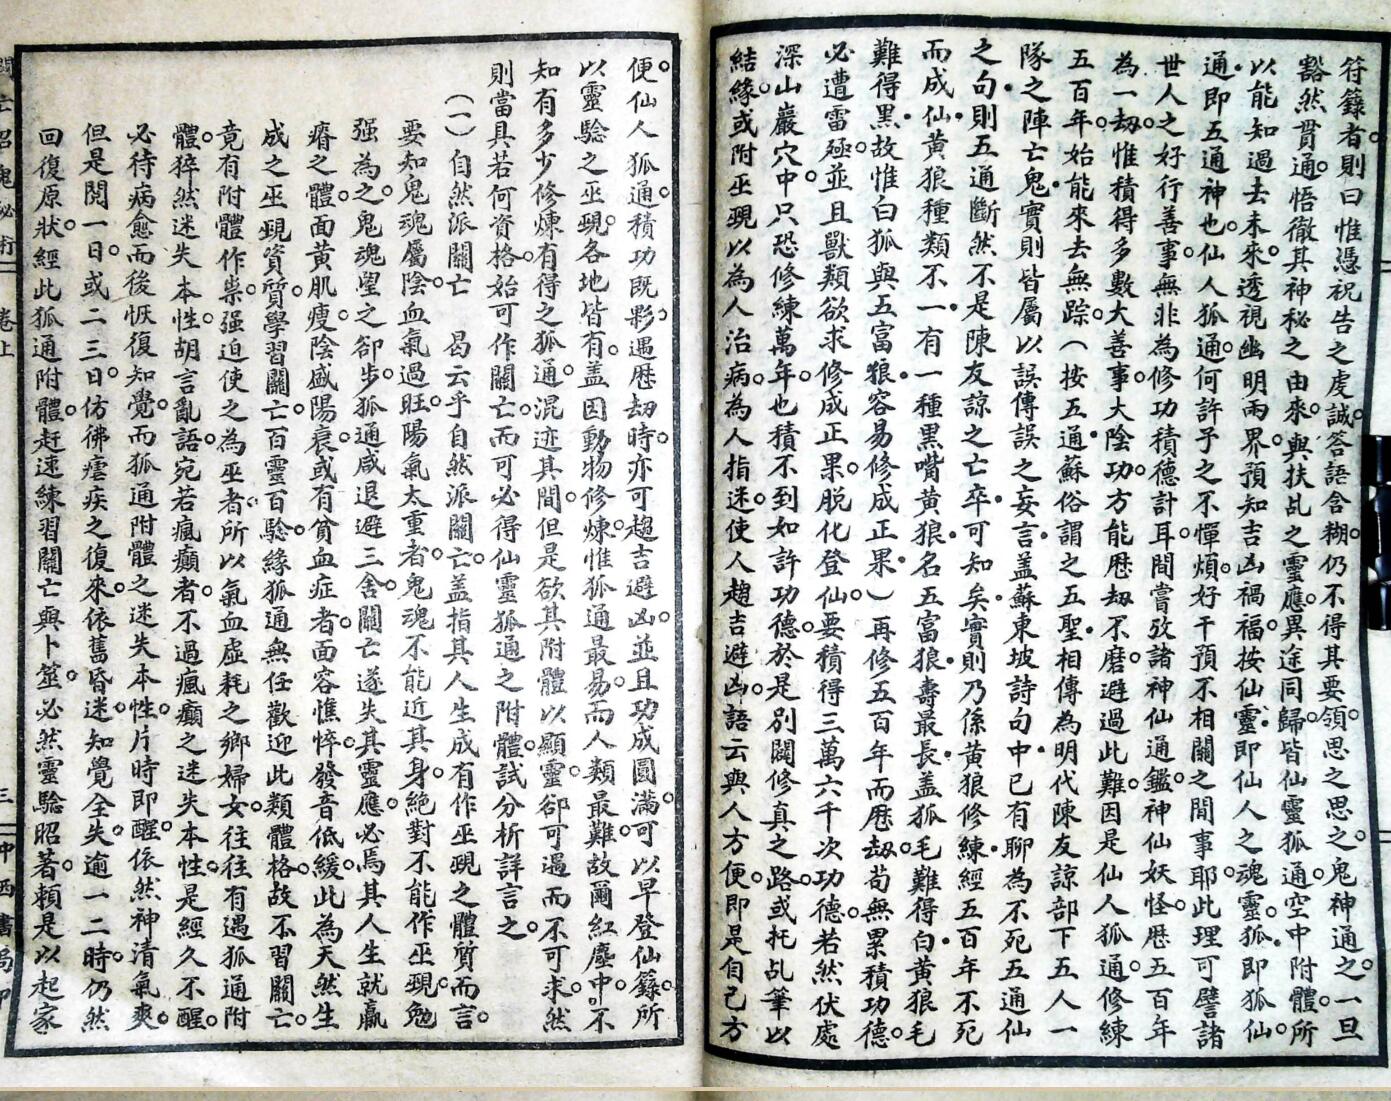 符籙者則曰惟憑祝告之虔誠答語含糊仍不得其要領思之思之鬼神通之一旦
豁然貫通悟徹其神秘之由來與扶乩之靈應異途同歸皆仙靈狐通空中附體所
以能知過去未來透視幽明兩界預知吉凶禍福按仙靈即仙人之魂靈狐即狐仙
通即五通神也仙人狐通何許予之不憚煩好干預不相關之閒事耶此理可譬諸
世人之好行善事無非為修功積德計耳間嘗攷諸神仙通鑑神仙妖怪歷五百年
為一劫惟積得多數大善事大陰功方能歷劫不磨避過此難因是仙人狐通修練
五百年始能來去無踪(按五通蘇俗謂之五聖相傳為明代陳友諒部下五人一
隊之陣亡鬼實則皆屬以誤傳誤之妄言蓋蘇東坡詩句中已有聊為不死五通仙
之句則五通斷然不是陳友諒之亡卒可知矣實則乃係黃狼修練經五百年不死
而成仙黃狼種類不一有一種黑嘴黃狼名五富狼壽最長蓋狐毛難得白黃狼毛
難得黑故惟白狐與五富狼容易修成正果)再修五百年而歷劫苟無累積功德
必遭雷殛並且獸類欲求修成正果脫化登仙要積得三萬六千次功德若然伏處
深山巖穴中只恐修練萬年也積不到如許功德於是別闢修真之路或托乩筆以
結緣或附巫覡以為人治病為人指迷使人趨吉避凶語云與人方便即是自己方
便仙人狐通積功既夥遇歷劫時亦可趨吉避凶並且功成圓滿可以早登仙籙所
以靈驗之巫覡各地皆有蓋因動物修煉惟狐通最易而人類最難故爾紅塵中不
知有多少修煉有得之狐通混迹其間但是欲其附體以顯靈卻可遇而不可求然
則當具若何資格始可作關亡而可必得仙靈狐通之附體試分析詳言之
(一)自然派關亡 曷云乎自然派關亡蓋指其人生成有作巫覡之體質而言
要知鬼魂屬陰血氣過旺陽氣太重者鬼魂不能近其身絕對不能作巫覡勉
强為之鬼魂望之卻步狐通咸退避三舍關亡遂失其靈應必焉其人生就羸
瘠之體面黃肌瘦陰盛陽衰或有貧血症者面容憔悴發音低緩此為天然生
成之巫覡資質學習關亡百靈百驗緣狐通無任歡迎此類體格故不習關亡
竟有附體作祟强迫使之為巫者所以氣血虛耗之鄉婦女往往有遇狐通附
體猝然迷失本性胡言亂語宛若瘋癲者不過瘋癲之迷失本性是經久不醒
必待病愈而後恢復知覺而狐通附體之迷失本性片時即醒依然神清氣爽
但是閱一日或二三日仿彿瘧疾之復來依舊昏迷知覺全失逾一二時仍然
回復原狀經此狐通附體赶速練習關亡與卜筮必然靈驗昭著賴是以起家
關亡招魂秘術 卷上 三 中西書局印